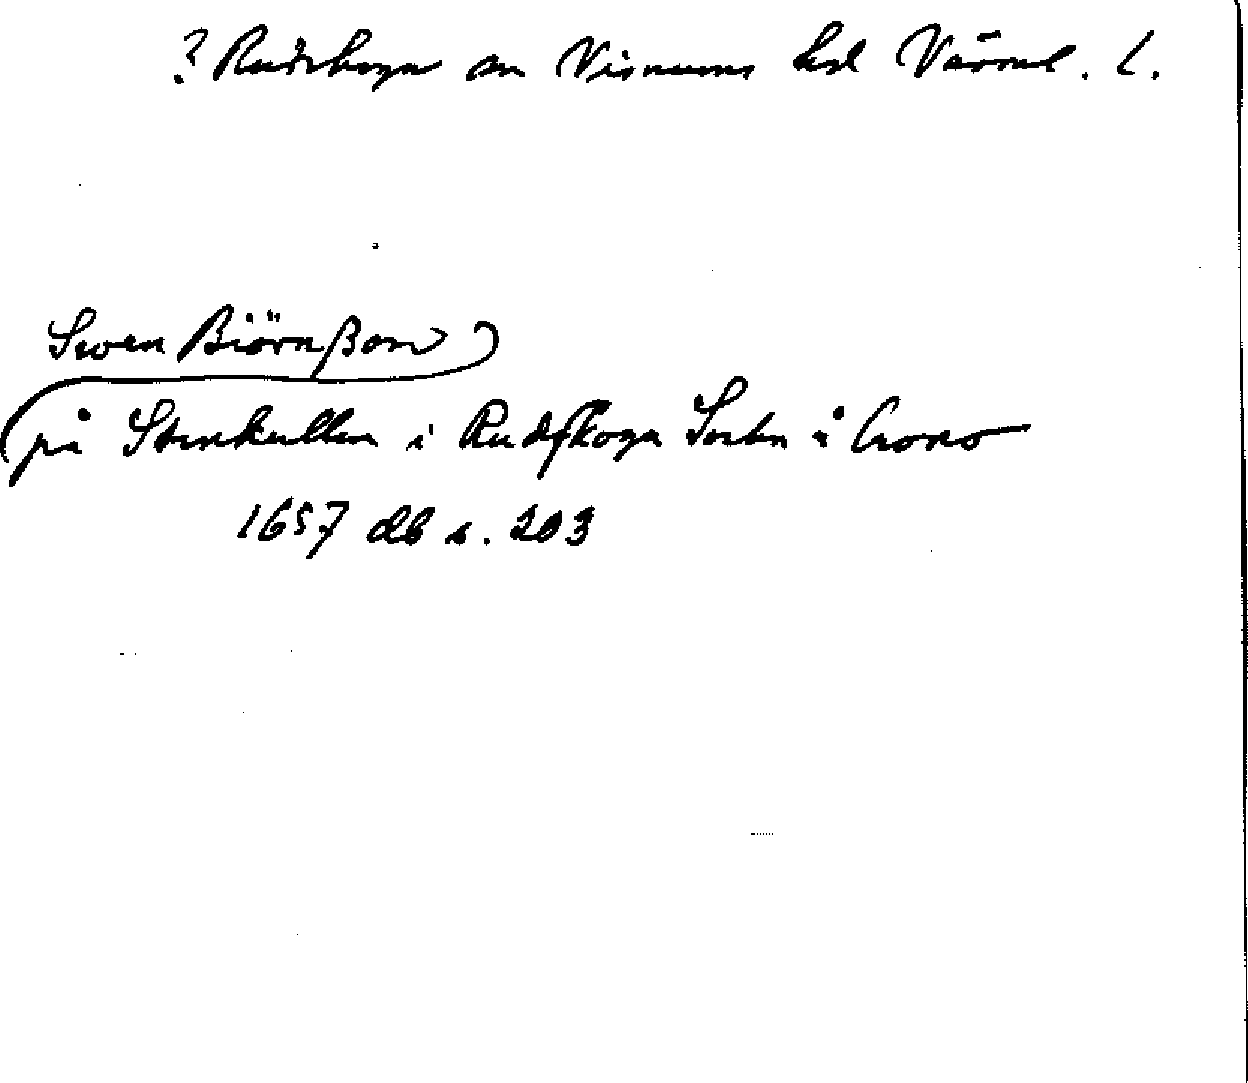 ? Rudskoga sn Visnums hd Värml. L.
Swen Biörnßon
på Stenkullen i Rudskoga Sochn å Crono
1657 db s. 203